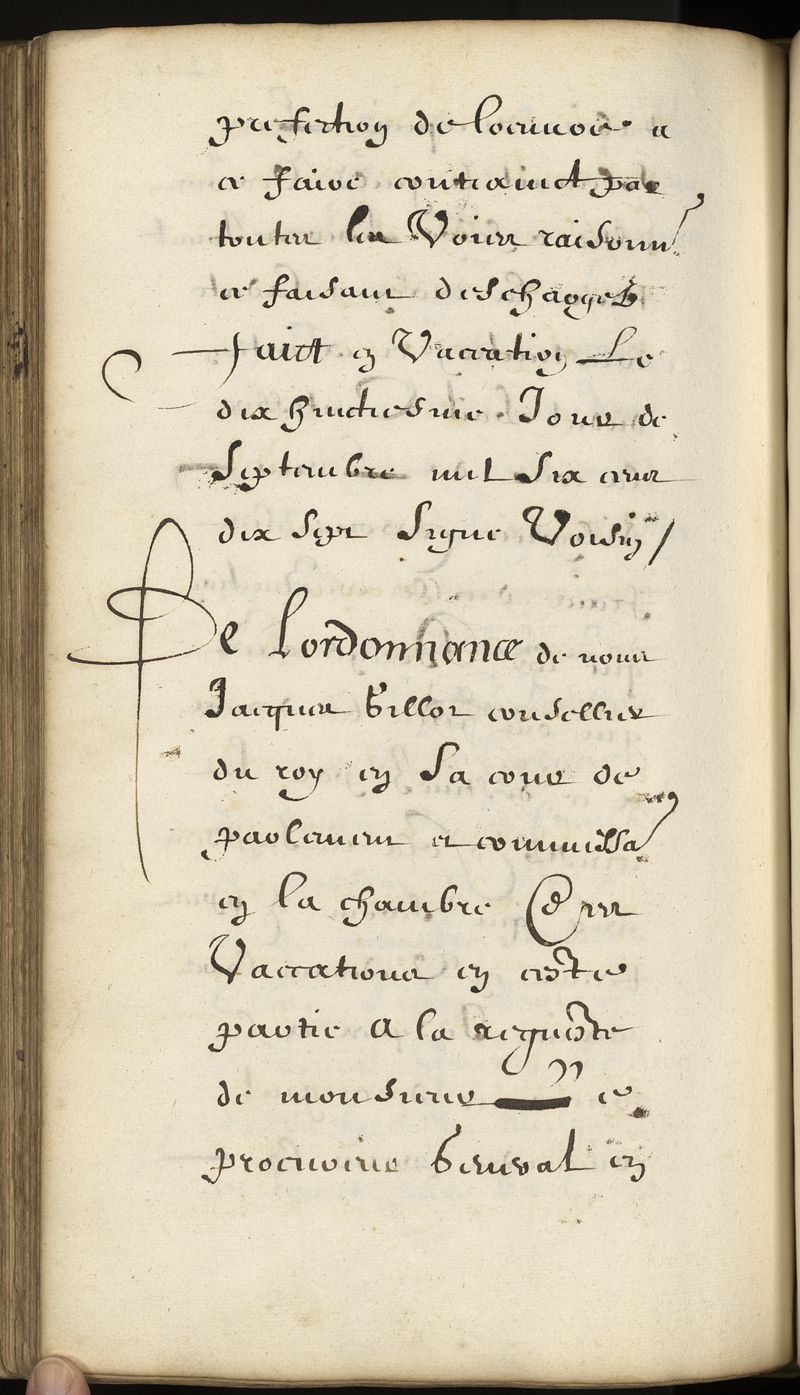 prefection de loeuvre a
ce faire contrainct par
toutes les Voies raisonn
ce faisant deschagges
Faict en Vaccation Le
dix huictiesme Jour de
Septembre mil Six cens
dix Sept Signe Voisin /
De Lordonnance de nous
Jacques Gillot consellier
du roy en Sa cour de
parlement et commissa
en la chambre des
Vaccations en ceste
partie A la requeste
de monsieur le
procureur General en